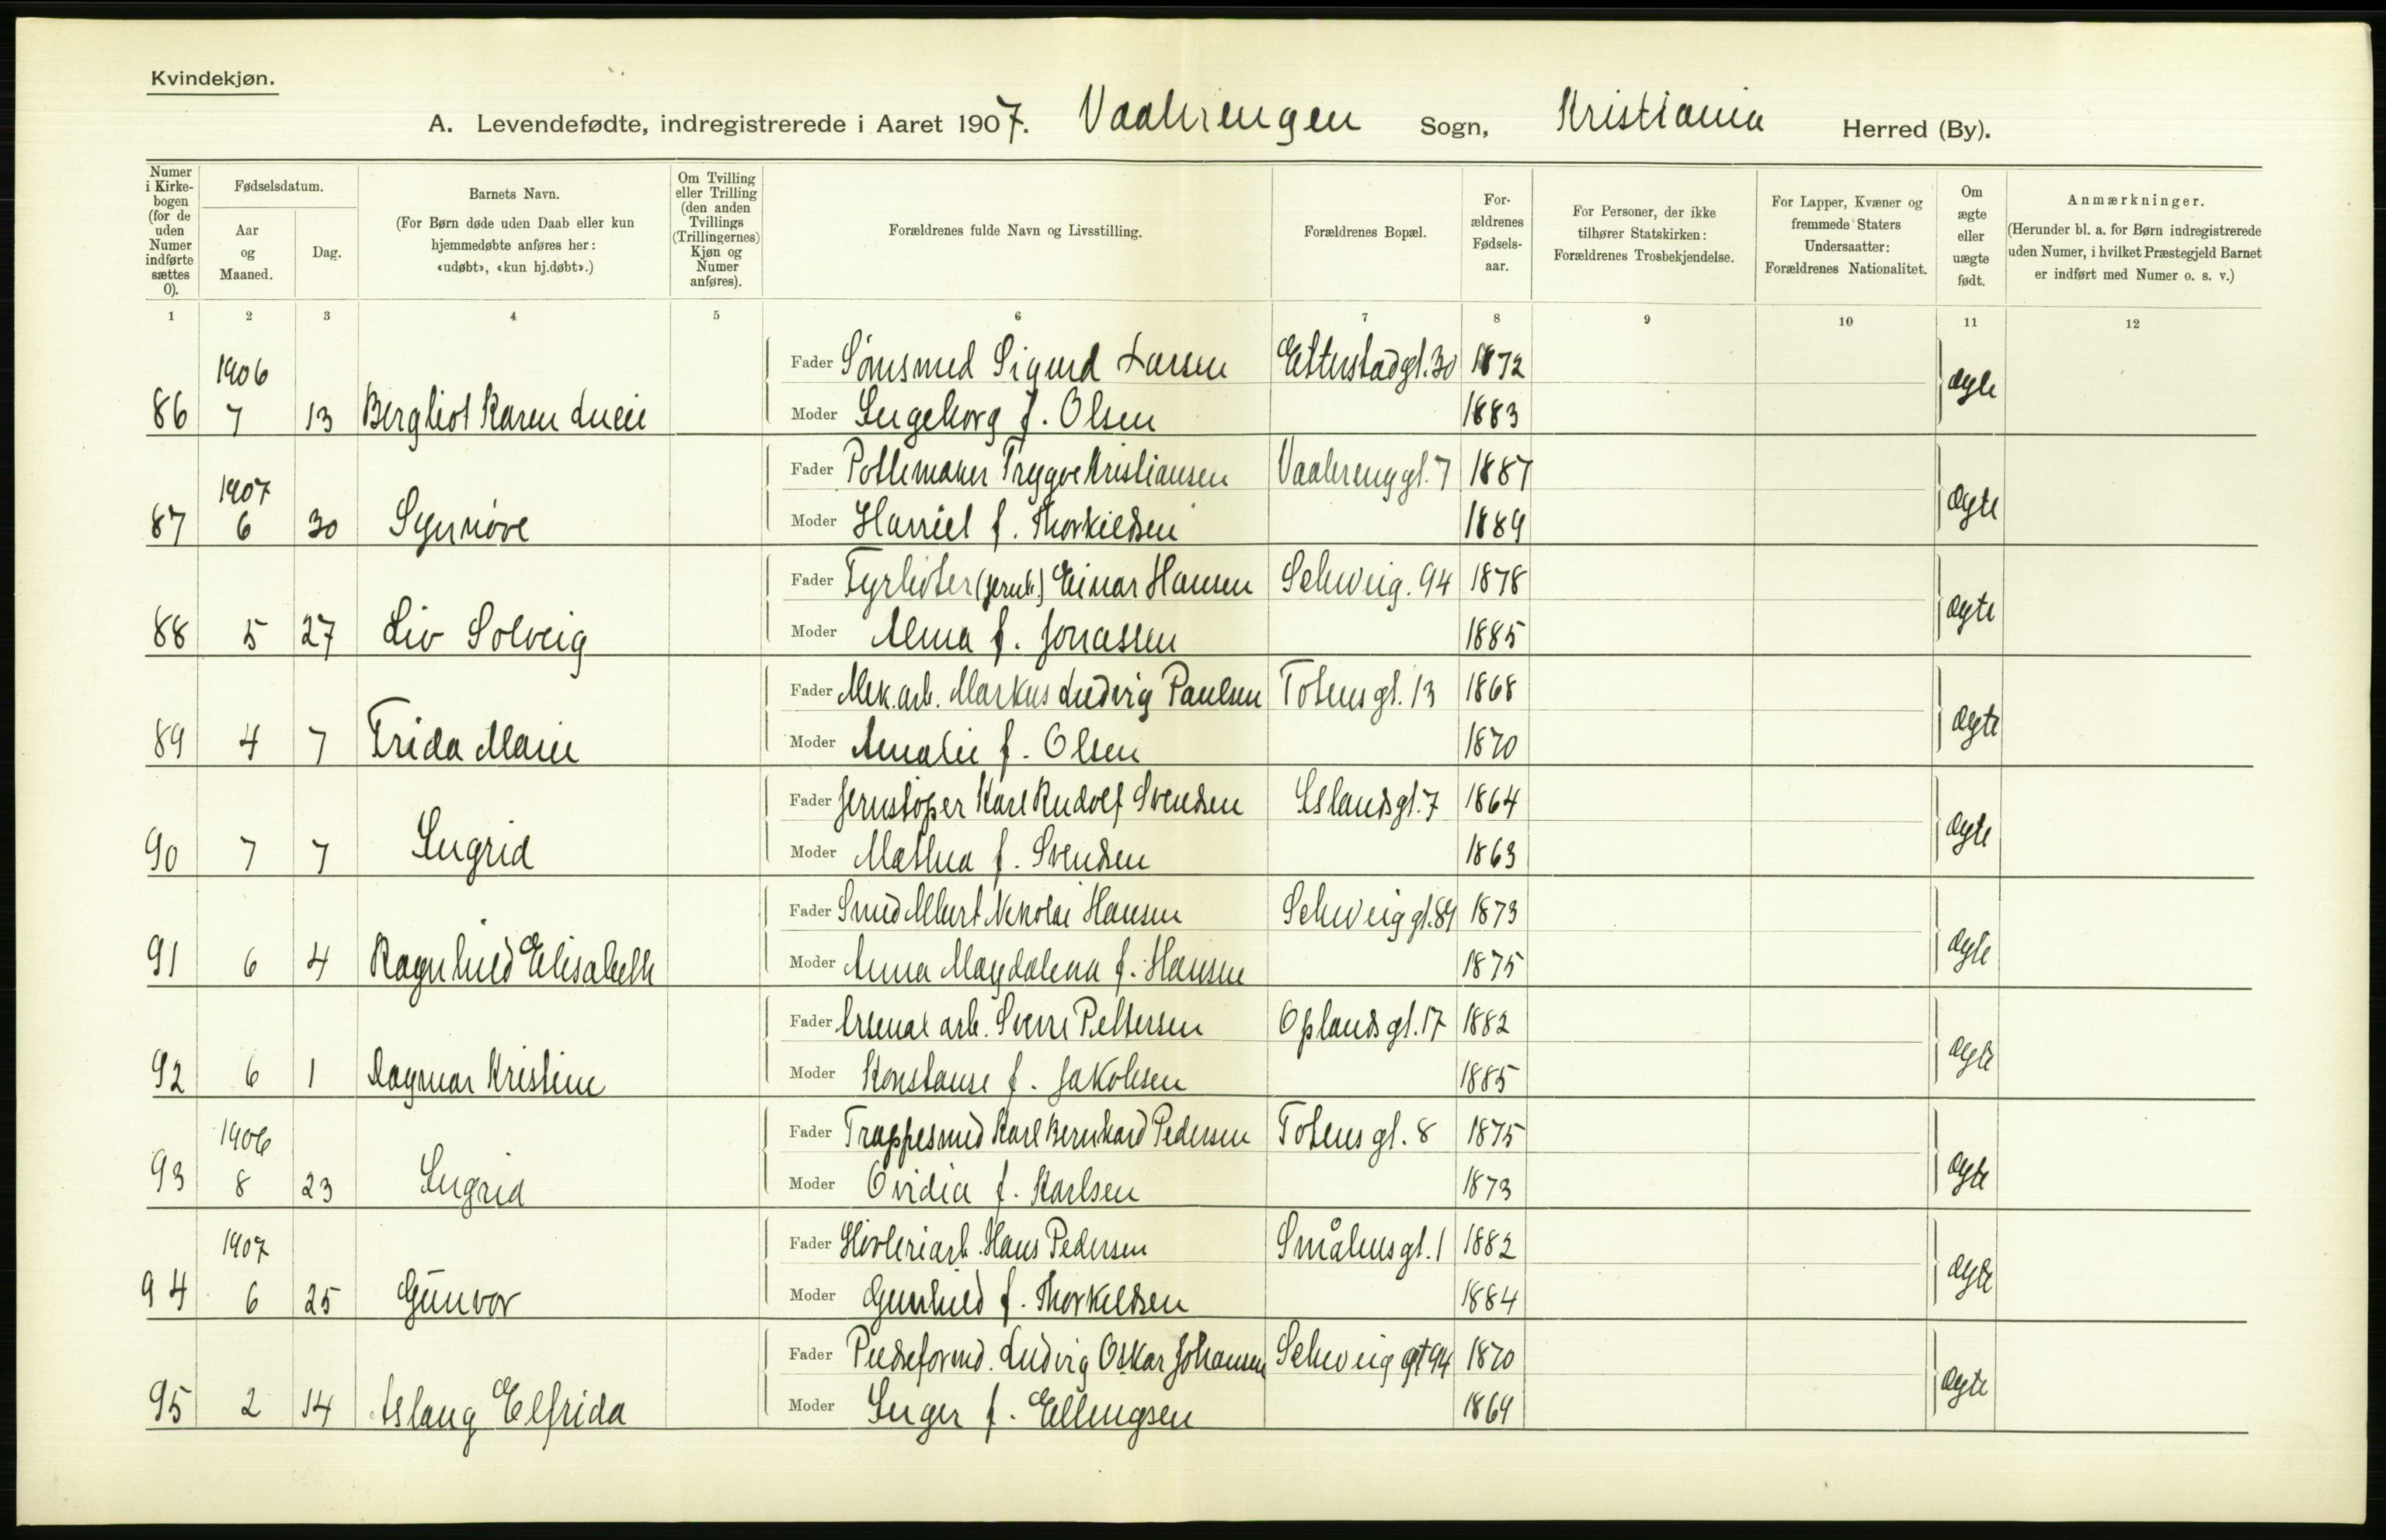 Kvindekjøn.
A. Levendefødte, indregistrerede i Aaret 1907. Vaalerengen Sogn, Kristiania Herred (By).
Numer i Kirkebogen (for de uden Numer indførte sættes 0).
Fødselsdatum.
Aar og Maaned.
Dag.
Barnets Navn.
(For Børn døde uden Daab eller kun hjemmedøbte anføres her: «udøbt», «kun hj.døbt».)
Om Tvilling eller Trilling (den anden Tvillings (Trillingernes) Kjøn og Numer anføres).
Forældrenes fulde Navn og Livsstilling.
Forældrenes Bopæl.
Forældrenes Fødselsaar.
For Personer, der ikke tilhører Statskirken: Forældrenes Trosbekjendelse.
For Lapper, Kvæner og fremmede Staters Undersaatter: Forældrenes Nationalitet.
Om ægte eller uægte født.
Anmærkninger.
(Herunder bl. a. for Børn indregistrerede uden Numer, i hvilket Præstegjeld Barnet er indført med Numer o. s. v.)
1 2 3 4 5 6 7 8 9 10 11 12
1906 Fader Sigurd Larsen Etterstadgt. 30 1872
86 7 13 Bergliot Karen Lucie Moder Ingeborg f. Olsen 1883 ægte
1907 Fader Pottemaker Trygve Kristiansen Vaalerenggt. 7 1887
87 6 30 Synnøve Moder Harriet f. Thorkildsen 1889 ægte
Fader Fyrbøter (jernb.) Einar Hansen Schweig. 94 1878
88 5 27 Liv Solveig Moder Alma f. Jonassen 1885 ægte
Fader Mek. arb. Markus Ludvig Paulsen Totensgt. 13 1868
89 4 7 Frida Marie Moder Amalie f. Olsen 1870 ægte
Fader Jernstøper Karl Rudolf Svendsen Islandsgt. 7 1864
90 7 7 Ingrid Moder Mathea f. Svendsen 1863 ægte
Fader Smed Albert Nikolai Hansen Schweiggt. 89 1873
91 6 4 Ragnhild Elisabeth Moder Anna Magdalena f. Hansen 1875 ægte
Fader Arsenal arb. Sverre Pettersen Oplandsgt. 17 1882
92 6 1 Dagmar Kristine Moder Konstanse f. Jakobsen 1885 ægte
1906 Fader Trappesmed Karl Bernhard Pedersen Totensgt. 8 1875
93 8 23 Ingrid Moder Ovidia f. Karlsen 1873 ægte
1907 Fader Høvleriarb. Hans Pedersen Småhusgt. 1 1882
94 6 25 Gunvor Moder Gunhild f. Thorkildsen 1884 ægte
Fader Ludvig Oskar Johansen Schweiggt 94 1870
95 2 14 Aslaug Elfrida Moder Inger f. Ellingsen 1869 ægte